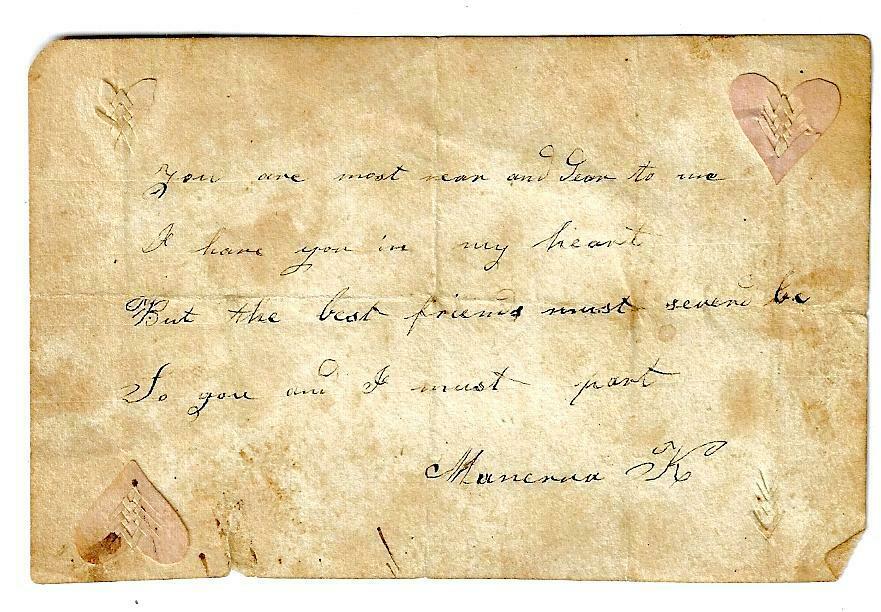 You are most near and Dear to me
I have you in my heart
But the best friends must severd be
So you and I must part
Manerva K